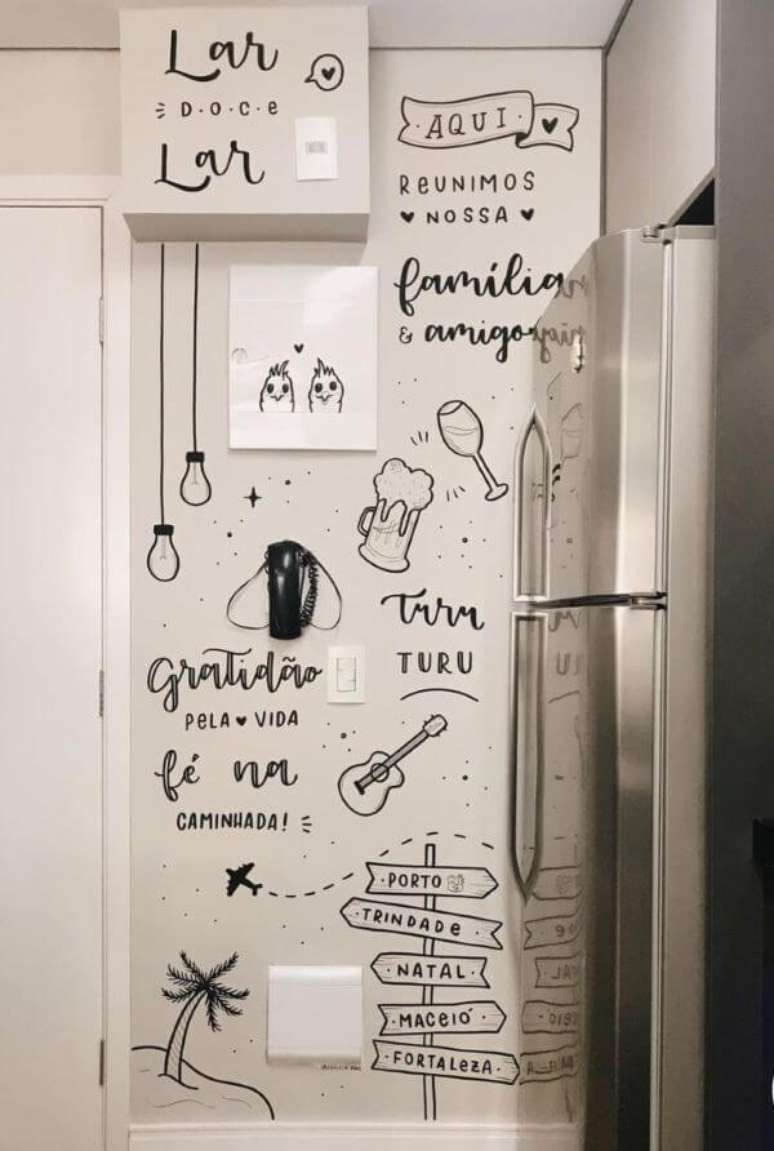 Lar
D.O.C.E
Lar
·AQUI·
REUNIMOS
NOSSA
família
& amigo
Turu
TURU
Gratidão
PELA VIDA
fé na
CAMINHADA!
·PORTO
·TRINDADE·
·NATAL·
·MACEIÓ·
·FORTALEZA·